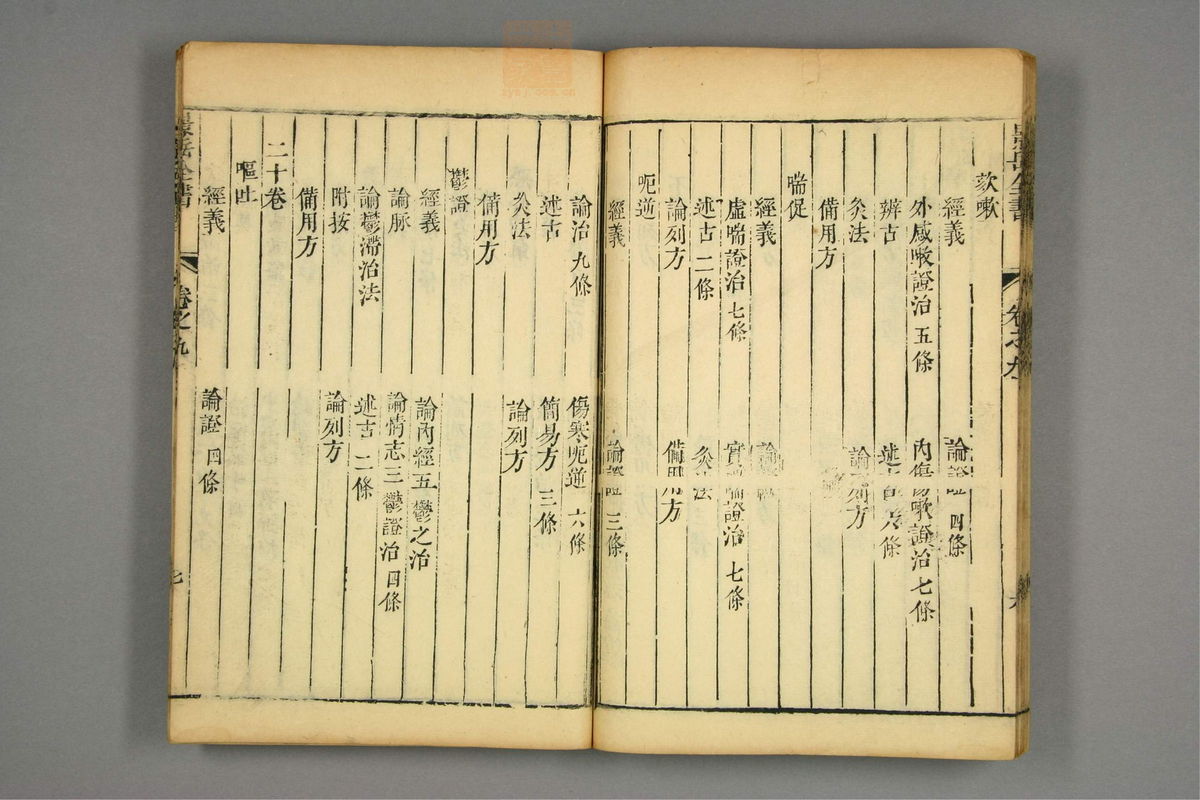 欬嗽
經義 論證 四條
外感嗽證治 五條 內傷嗽證治 七條
辨古 述古 六條
灸法 論列方
備用方
喘促
經義 論證
虛喘證治 七條 實喘證治 七條
述古 二條 灸法
論列方 備用方
呃逆
經義 論證 三條
論治 九條 傷寒呃逆 六條
述古 簡易方 三條
灸法 論列方
備用方
鬱證
經義 論內經五鬱之治
論脉 論情志三鬱證治 四條
論鬱滯治法 述古 二條
附按 論列方
備用方
二十卷
嘔吐
經義 論證 四條
景岳全書 卷之九 七